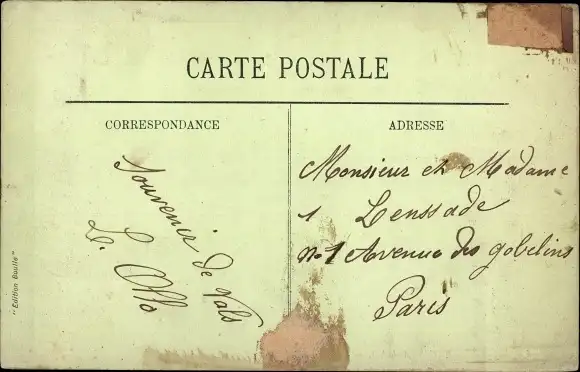 CARTE POSTALE
CORRESPONDANCE
ADRESSE
Souvenir de Vals
L. Otto
Monsieur et Madame
1 Lenssade
No 1 Avenue des gobelins
Paris
"Edition Baulle"